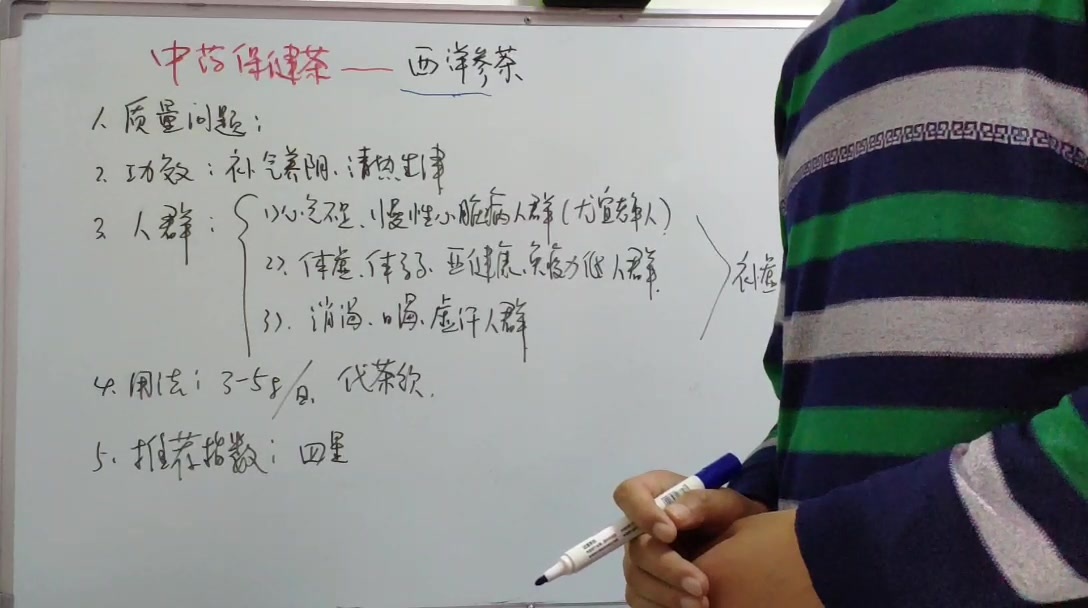 中药保健茶 —— 西洋参茶
1. 质量问题：
2. 功效：补气养阴、清热生津
3. 人群：
1) 心气不足、慢性心脏病人群(尤宜老年人)
2). 体虚、体弱、亚健康、免疫力低人群.
3). 消渴、口渴、虚汗人群
补虚
4. 用法：3-5g/日. 代茶饮.
5. 推荐指数：四星